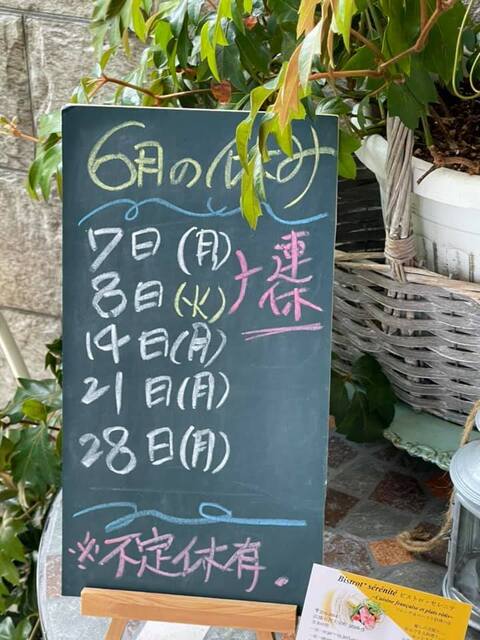 6月の休み
7日(月)
8日(火)
連休
14日(月)
21日(月)
28日(月)
※不定休有.
Bistrot* sérénité ビストロ・セレニテ
~Cuisine française et plats rôtis~